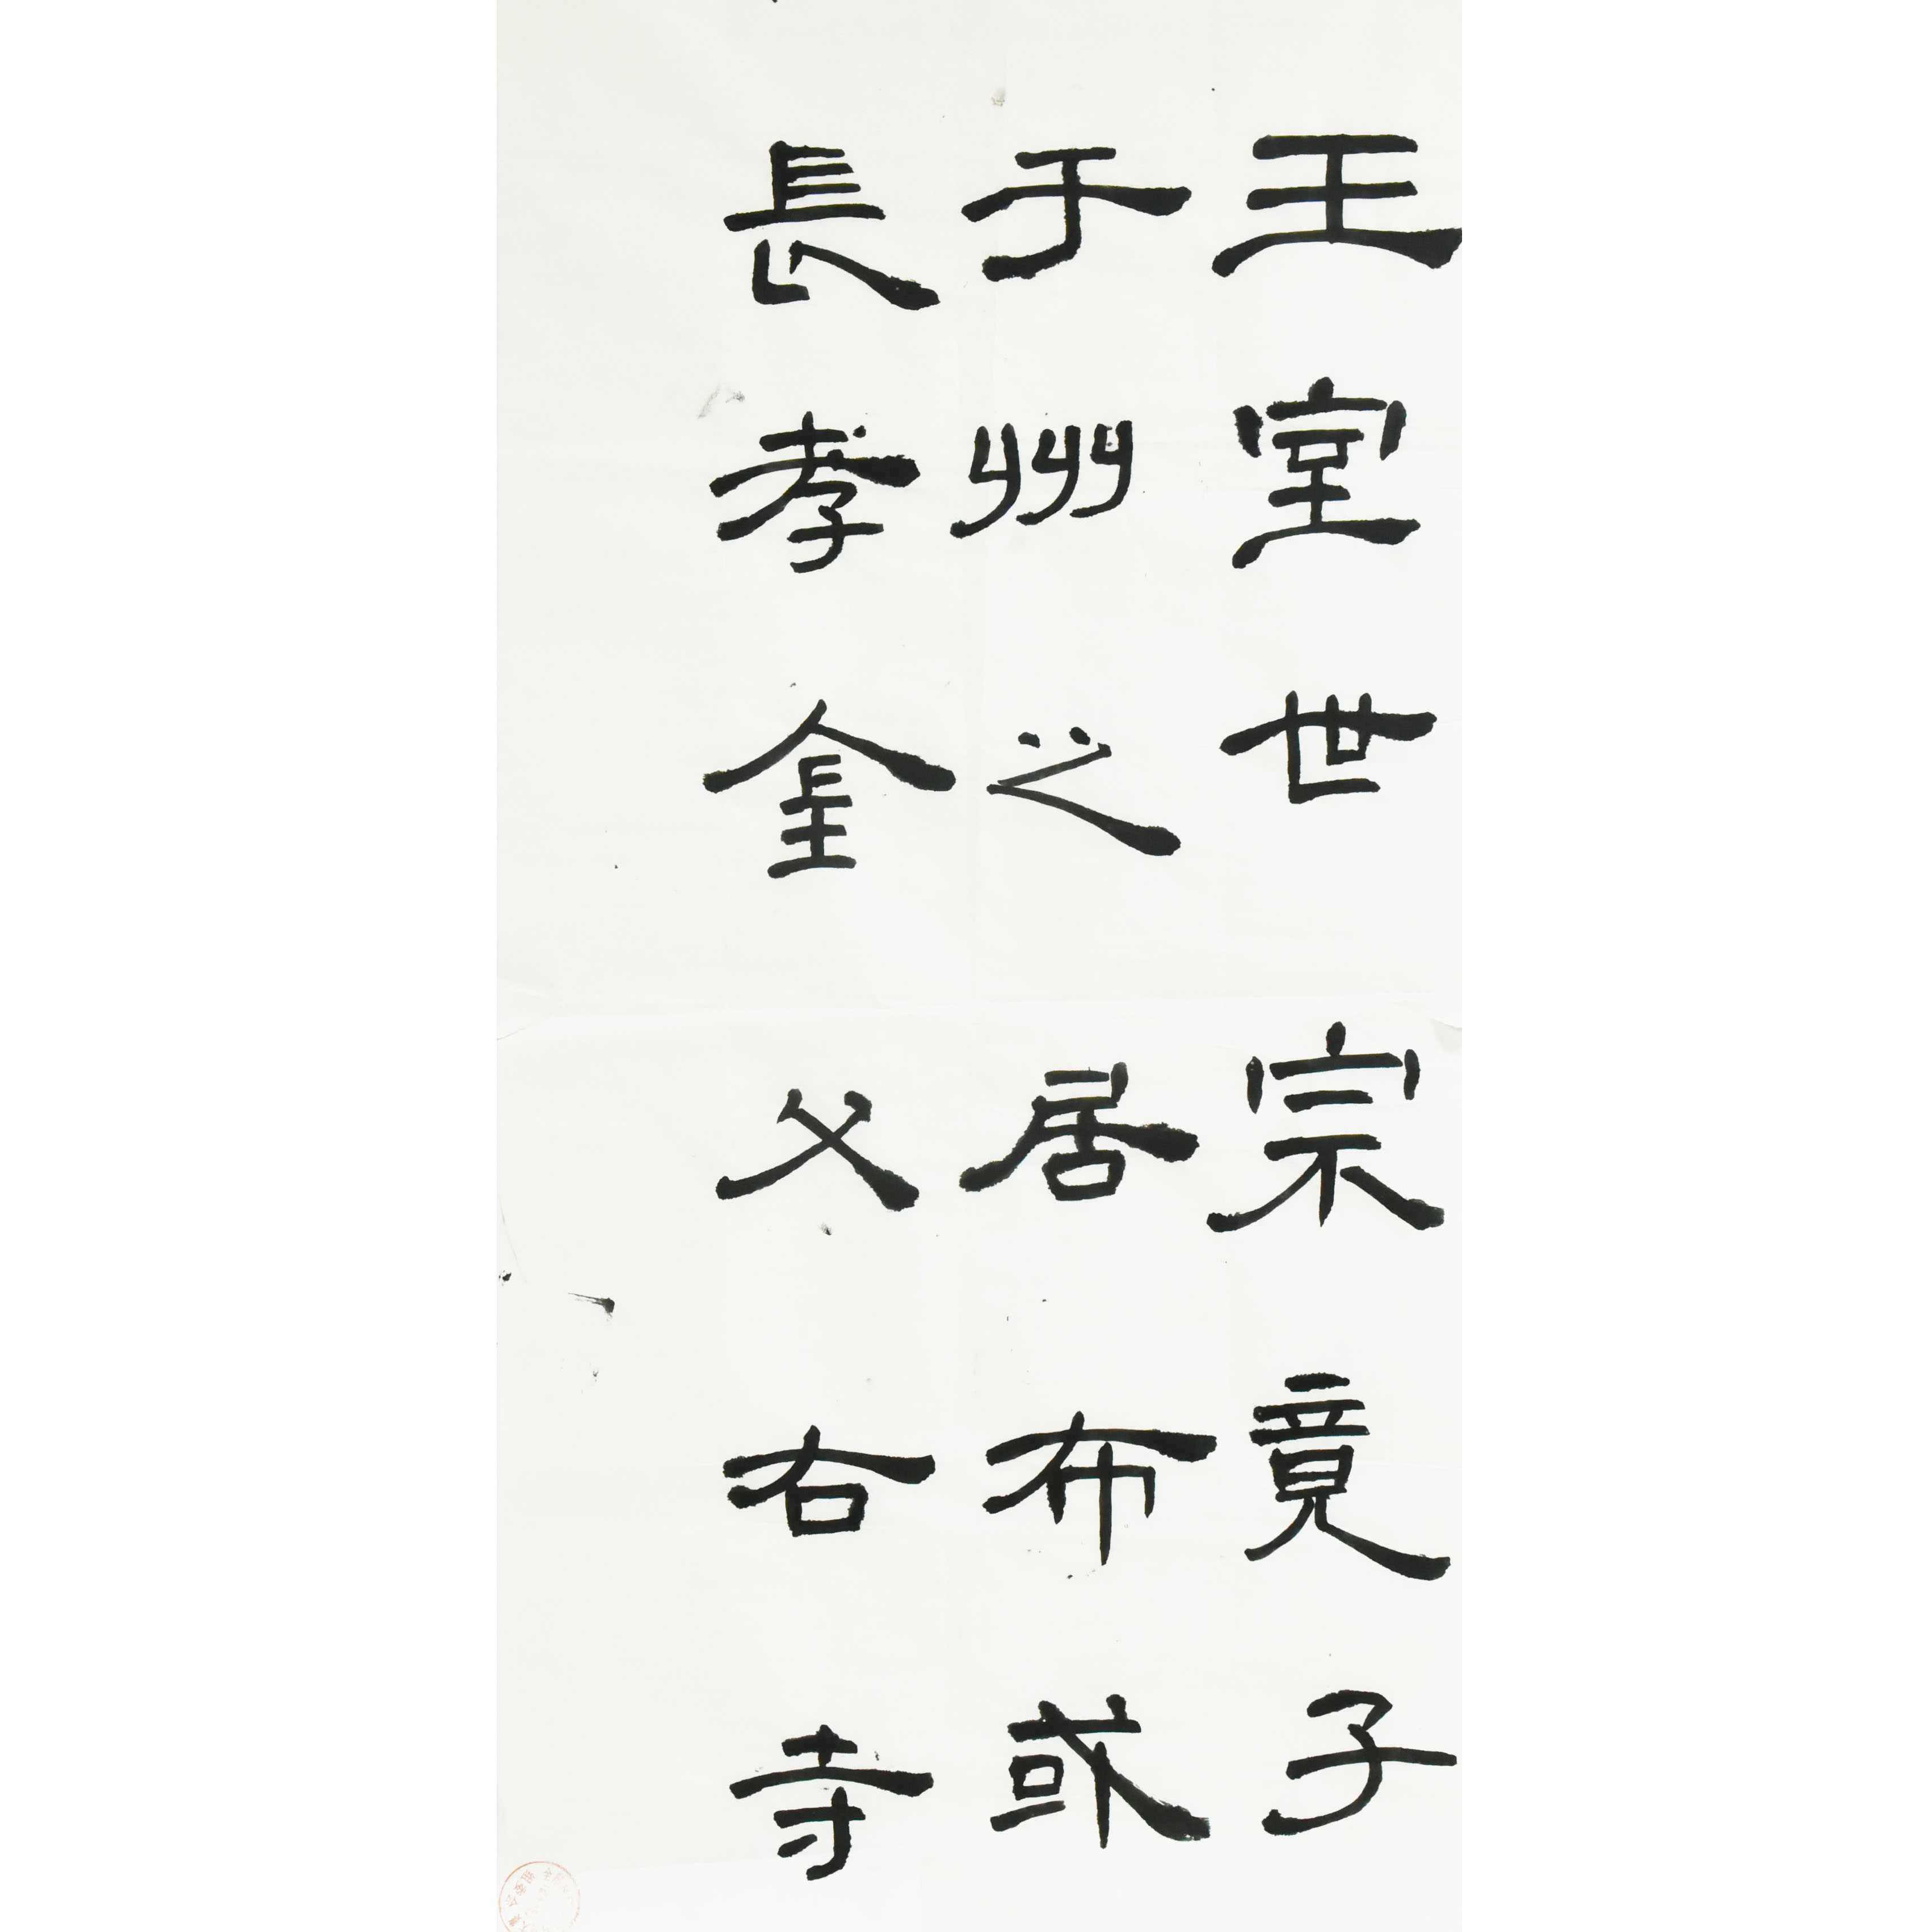 王室世宗竟子
于州之居布或
長孝父右寺